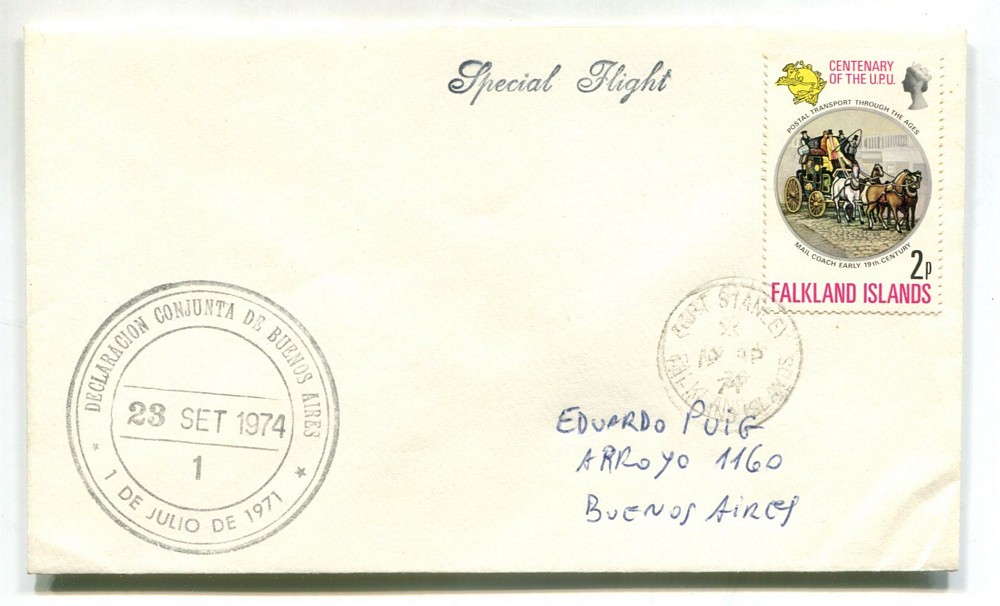 Special Flight
CENTENARY
OF THE U.P.U.
POSTAL TRANSPORT THROUGH THE AGES
MAIL COACH EARLY 19th. CENTURY
2p
FALKLAND ISLANDS
PORT STANLEY
FALKLAND ISLANDS
DECLARACION CONJUNTA DE BUENOS AIRES
23 SET 1974
1
* 1 DE JULIO DE 1971 *
EDUARDO PUIG
ARROYO 1160
BUENOS AIRES